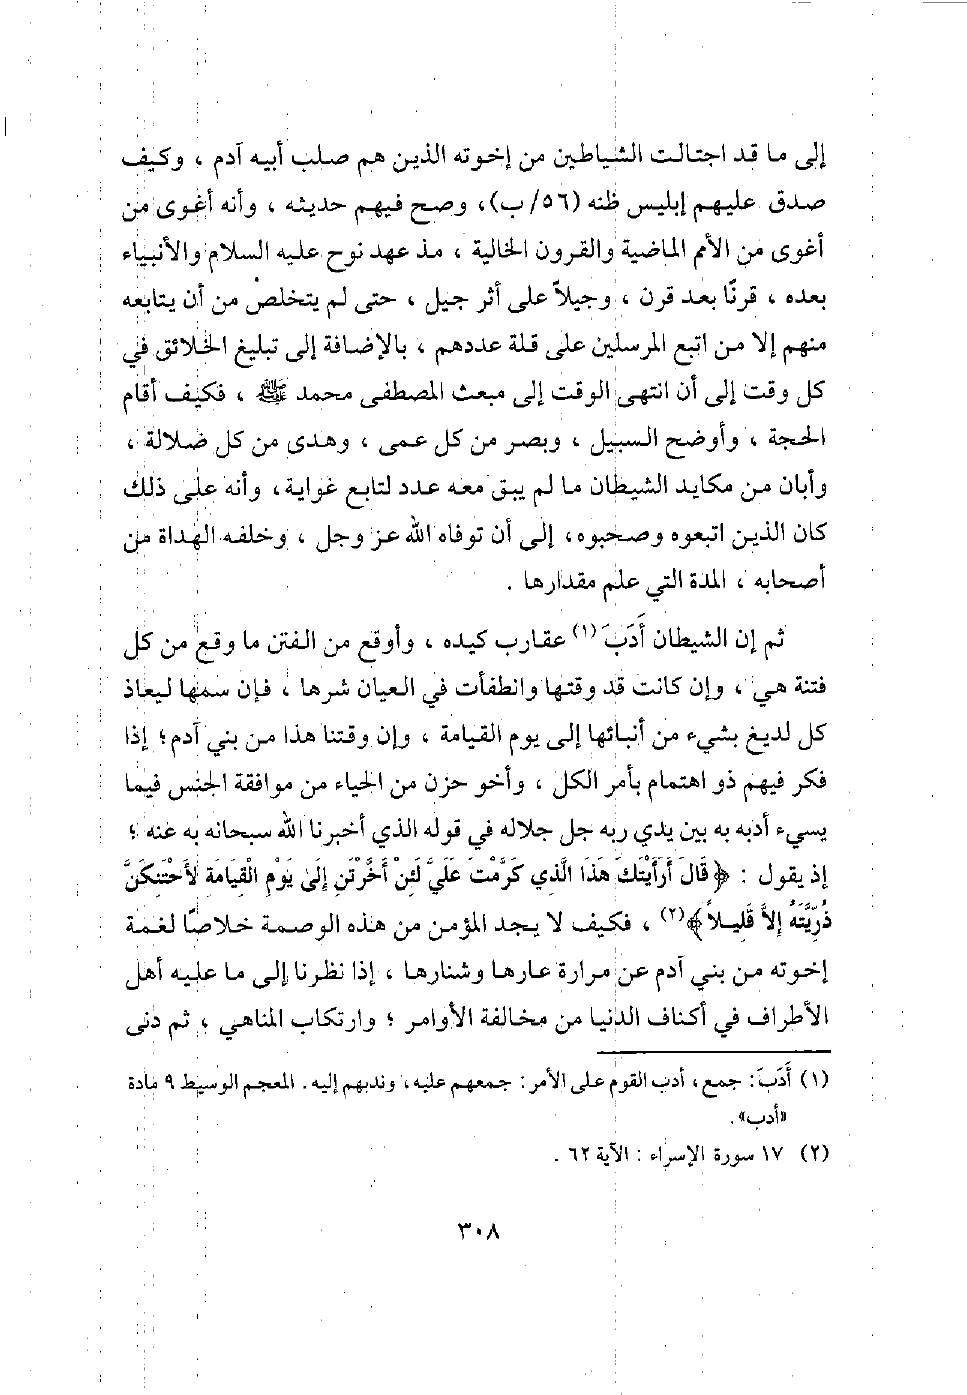 إلى ما قد اجتالت الشياطين من إخوته الذين هم صلب أبيه آدم ، وكيف
صدق عليهم إبليس ظنه (٥٦/ ب)، وصح فيهم حديثه ، وأنه أغوى من
أغوى من الأمم الماضية والقرون الخالية ، مذ عهد نوح عليه السلام والأنبياء
بعده ، قرنًا بعد قرن ، وجيلاً على أثر جيل ، حتى لم يتخلص من أن يتابعه
منهم إلا من اتبع المرسلين على قلة عددهم ، بالإضافة إلى تبليغ الخلائق في
كل وقت إلى أن انتهى الوقت إلى مبعث المصطفى محمد ﷺ ، فكيف أقام
الحجة ، وأوضح السبيل ، وبصر من كل عمى ، وهدى من كل ضلالة ،
وأبان من مكايد الشيطان ما لم يبق معه عدد لتابع غواية، وأنه على ذلك
كان الذين اتبعوه وصحبوه، إلى أن توفاه الله عز وجل ، وخلفه الهداة من
أصحابه ، المدة التي علم مقدارها .
ثم إن الشيطان أَدَبَ (١) عقارب كيده ، وأوقع من الفتن ما وقع من كل
فتنة هي ، وإن كانت قد وقتها وانطفأت في العيان شرها ، فإن سمها ليعاذ
كل لديغ بشيء من أنبائها إلى يوم القيامة ، وإن وقتنا هذا من بني آدم؛ إذا
فكر فيهم ذو اهتمام بأمر الكل ، وأخو حزن من الحياء من موافقة الجنس فيما
يسيء أدبه به بين يدي ربه جل جلاله في قوله الذي أخبرنا الله سبحانه به عنه ؛
إذ يقول : ﴿قَالَ أَرَأَيْتَكَ هَذَا الَّذِي كَرَّمْتَ عَلَيَّ لَئِنْ أَخَّرْتَنِ إِلَىٰ يَوْمِ الْقِيَامَة لأَحْتَنِكَنَّ
ذُرِّيَّتَهُ إِلاَّ قَلِيلاً﴾(٢) ، فكيف لا يجد المؤمن من هذه الوصمة خلاصًا لغمة
إخوته من بني آدم عن مرارة عارها وشنارها ، إذا نظرنا إلى ما عليه أهل
الأطراف في أكناف الدنيا من مخالفة الأوامر ؛ وارتكاب المناهي ، ثم دنى
(١) أَدَبَ: جمع، أدب القوم على الأمر: جمعهم عليه، وندبهم إليه. المعجم الوسيط ٩ مادة
«أدب».
(٢) ١٧ سورة الإسراء : الآية ٦٢ .
٣٠٨